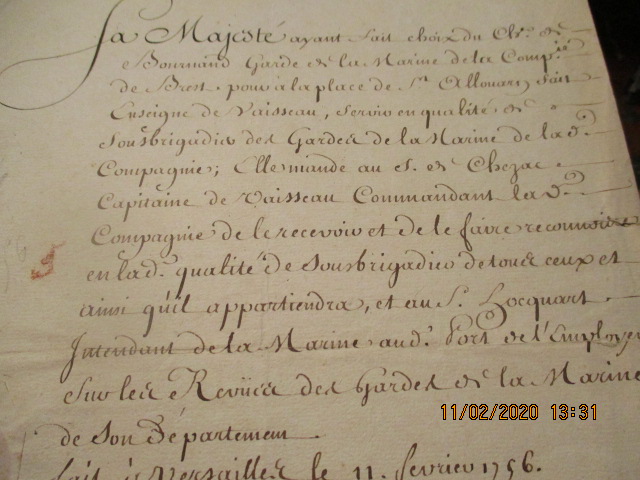 Sa Majesté ayant fait choix du Chr. de
Bournand Garde de la Marine de la Comp.ie
de Brest, pour à la place de Sr. Allouarn, fait
Enseigne de Vaisseau, servir en qualité de
Sousbrigadier des Gardes de la Marine de la d.
Compagnie; Elle mande au S. de Chezac
Capitaine de Vaisseau Commandant la d.
Compagnie de le recevoir et de le faire reconnoitre
en la d. qualité de Sousbrigadier de tous ceux et
ainsi qu'il appartiendra, et au S. Hocquart
Intendant de la Marine aud. Port de l'Employer
sur les Revües des Gardes de la Marine
de son Département.
fait à Versailles le 11. fevrier 1756.
11/02/2020 13:31